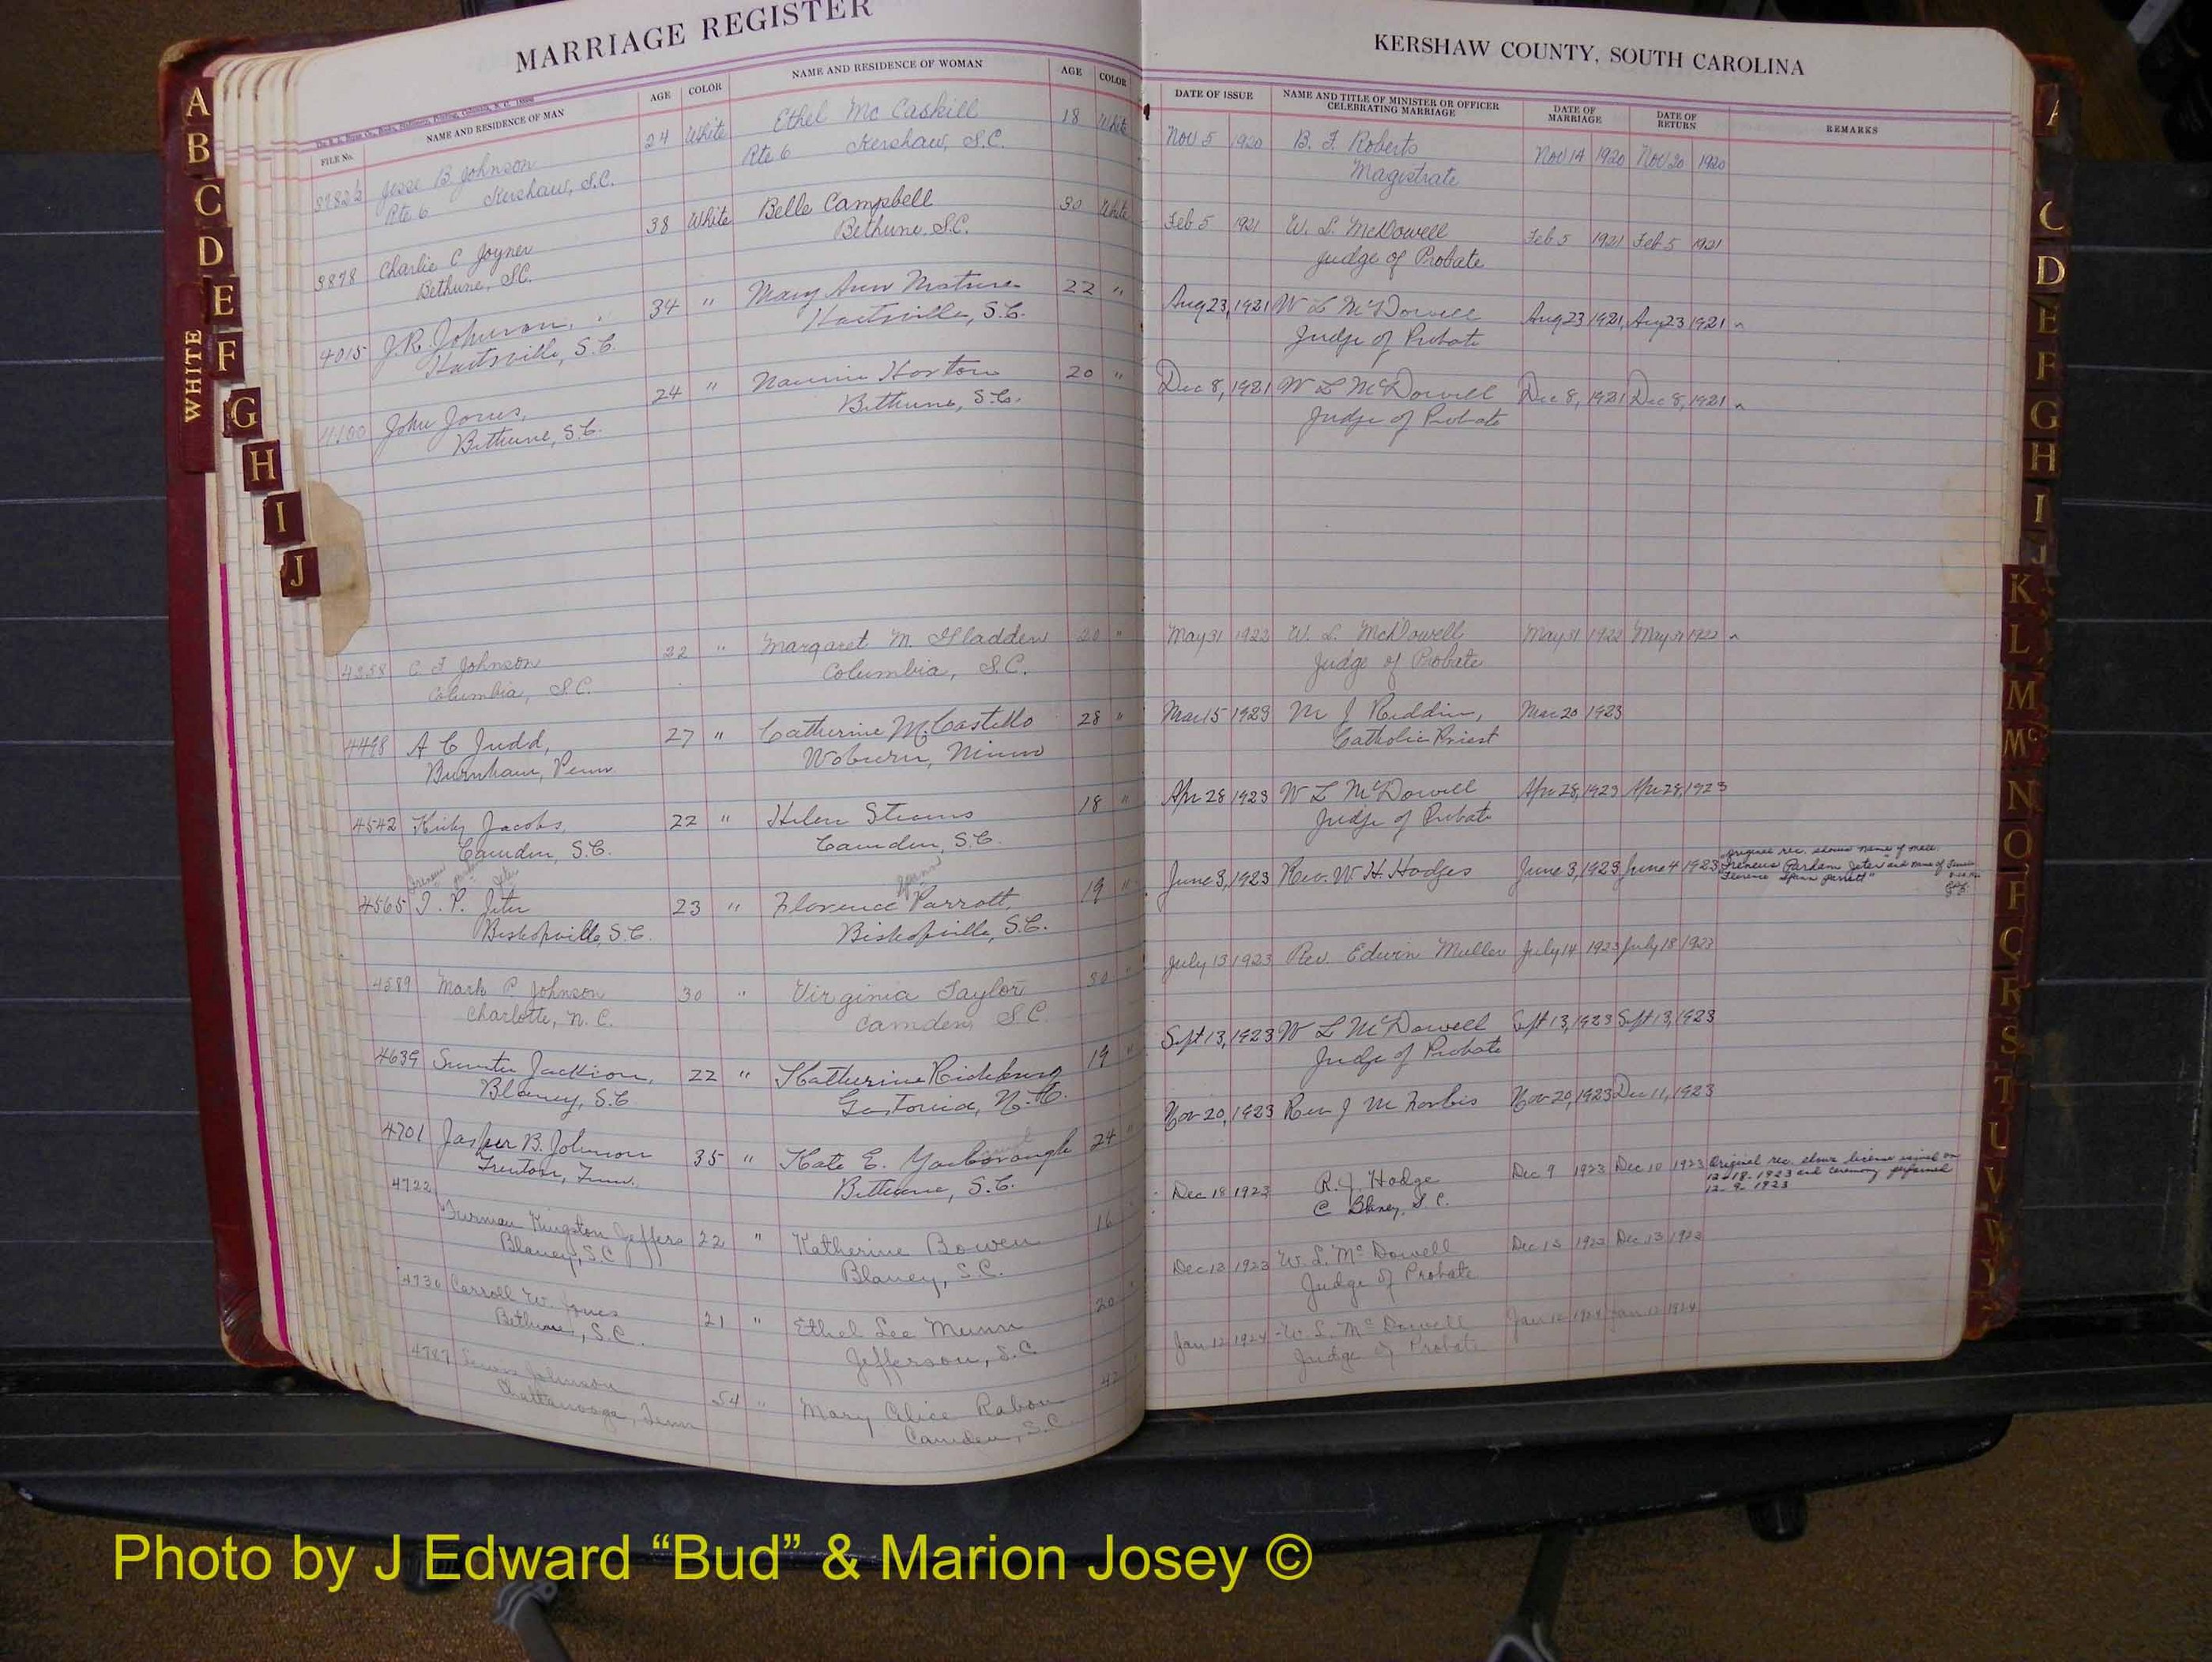 MARRIAGE REGISTER
KERSHAW COUNTY, SOUTH CAROLINA
FILE No. NAME AND RESIDENCE OF MAN AGE COLOR NAME AND RESIDENCE OF WOMAN AGE COLOR DATE OF ISSUE NAME AND TITLE OF MINISTER OR OFFICER CELEBRATING MARRIAGE DATE OF MARRIAGE DATE OF RETURN REMARKS
Jesse B Johnson 24 White Ethel McCaskill 18 White Nov 5 1920 B. F. Roberts Nov 14 1920 Nov 20 1920
Rte 6 Kershaw, S.C. Rte 6 Kershaw, S.C. Magistrate
3878 Charlie C Joyner 38 White Belle Campbell 30 White Feb 5 1921 W. L. McDowell Feb 5 1921 Feb 5 1921
Bethune, S.C. Bethune, S.C. Judge of Probate
4015 J.R. Johnson, 34 " Mary Ann 22 " Aug 23, 1921 W L McDowell Aug 23 1921, Aug 23 1921
Hartsville, S.C. Hartsville, S.C. Judge of Probate
John Jones, 24 " Horton 20 " Dec 8, 1921 W L McDowell Dec 8, 1921 Dec 8, 1921
Bethune, S.C. Bethune, S.C. Judge of Probate
4358 C. F Johnson 22 " Margaret M. Gladden 20 " May 31 1922 W. L. McDowell May 31 1922 May 31 1922
Columbia, S.C. Columbia, S.C. Judge of Probate
4498 A C Judd, 27 " Catherine M. Costello 28 " Mar 15 1923 M J Mar 20 1923
Burnham, Penn Woburn, Catholic Priest
4542 Jacobs, 22 " Helen 18 " Apr 28 1923 W L McDowell Apr 28, 1923 Apr 28, 1923
Camden, S.C. Camden, S.C. Judge of Probate
Ireneus Parham Jeter
4565 I. P. Jeter 23 " Florence Parrott, 19 " June 3, 1923 Rev. W. H. Hodges June 3, 1923 June 4 1923 Original rec. shows name of male "Ireneus Parham Jeter" and name of female
Bishopville, S.C. Bishopville, S.C.
4589 Mark P Johnson 30 " Virginia Taylor 30 " July 13 1923 Rev. Edwin Muller July 14 1923 July 18 1923
Charlotte, N.C. Camden, S.C
4639 Sumter Jackson, 22 " Katherine 19 " Sept 13, 1923 W L McDowell Sept 13, 1923 Sept 13, 1923
Blaney, S.C Gastonia, N.C. Judge of Probate
4701 Jasper B. Johnson 35 " Kate E. Yarborough 24 " Nov 20, 1923 Rev J M Forbis Nov 20, 1923 Dec 11, 1923
Trenton, Tenn. Bethune, S.C.
4722 Furman Kingston Jeffers 22 " Katherine Bowen 16 Dec 18 1923 R. J. Hodge Dec 9 1923 Dec 10 1923 Original rec. shows license issued on 12-18-1923 and ceremony performed 12-9-1923
Blaney, S.C Blaney, S.C. Blaney, S.C.
4730 Carroll W. Jones 21 " Ethel Lee Munn 20 Dec 13 1923 W. L. McDowell Dec 13 1923 Dec 13 1923
Bethune, S.C. Jefferson, S.C Judge of Probate
4787 Johnson 54 " Mary Alice Rabon Jan 12 1924 W. L. McDowell Jan 12 1924 Jan 12 1924
Chattanooga, Tenn Camden, S.C Judge of Probate
WHITE
A
B
C
D
E
F
G
H
I
J
A
C
D
E
F
G
H
I
J
K
L
M
Mc
N
O
P
Q
R
S
T
U
V
W
Y
Photo by J Edward “Bud” & Marion Josey ©